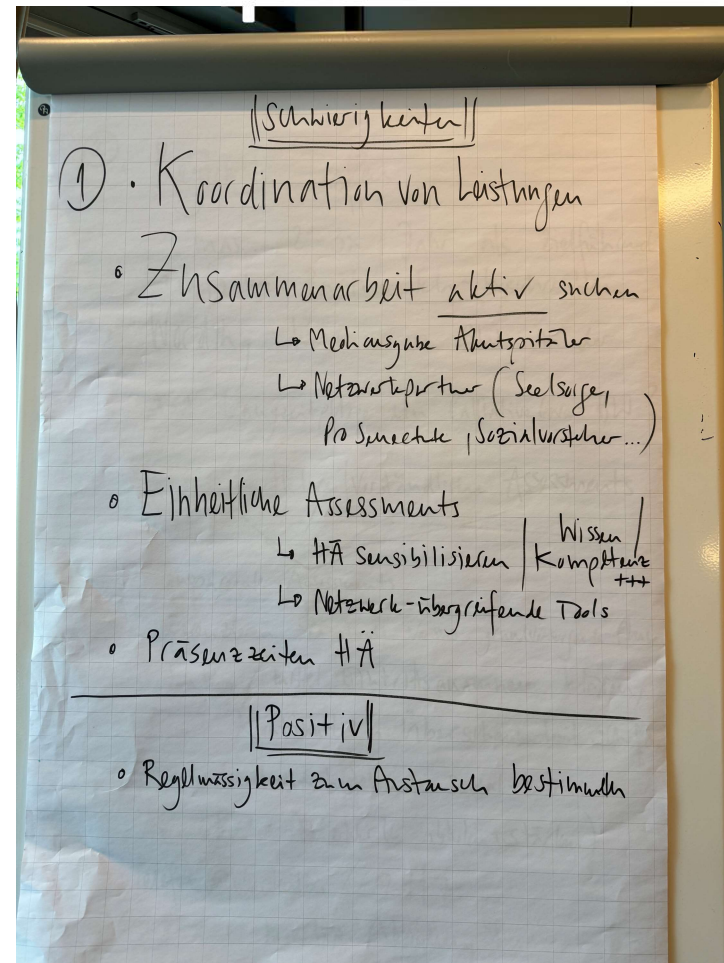 Schwierigkeiten
① • Koordination von Leistungen
• Zusammenarbeit aktiv suchen
↳ Mediausgabe Akutspitäler
↳ Netzwerkpartner (Seelsorge,
Pro Senectute, Sozialvorsteher...)
• Einheitliche Assessments
↳ HÄ sensibilisieren | Wissen /
Kompetenz
+++
↳ Netzwerk-übergreifende Tools
• Präsenzzeiten HÄ
Positiv
• Regelmässigkeit zum Austausch bestimmen